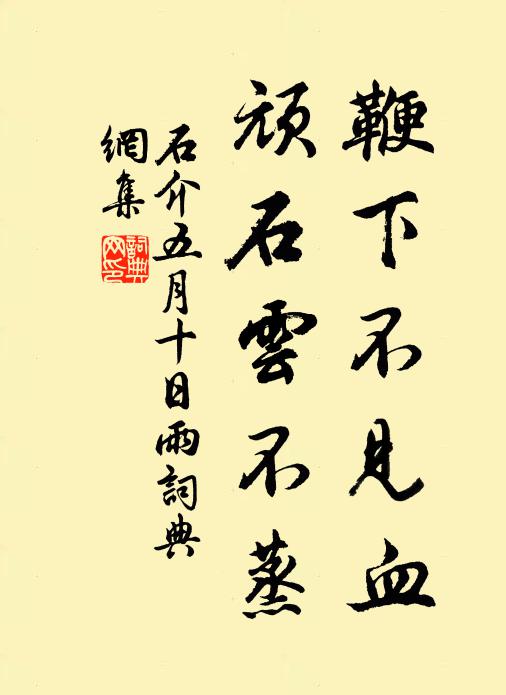 鞭下不見血
頑石雲不蒸
石介五月十日雨詞典
網集
詞典網印